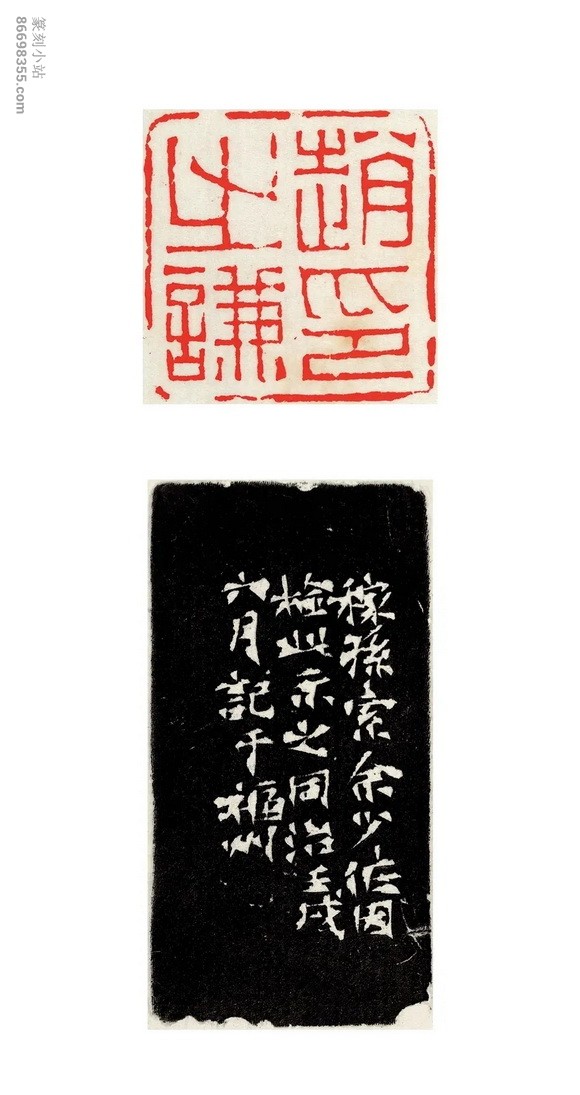 篆刻小站
86698355.com
趙印
之謙
稼孫索余少作因
檢此示之同治壬戌
六月記于福州